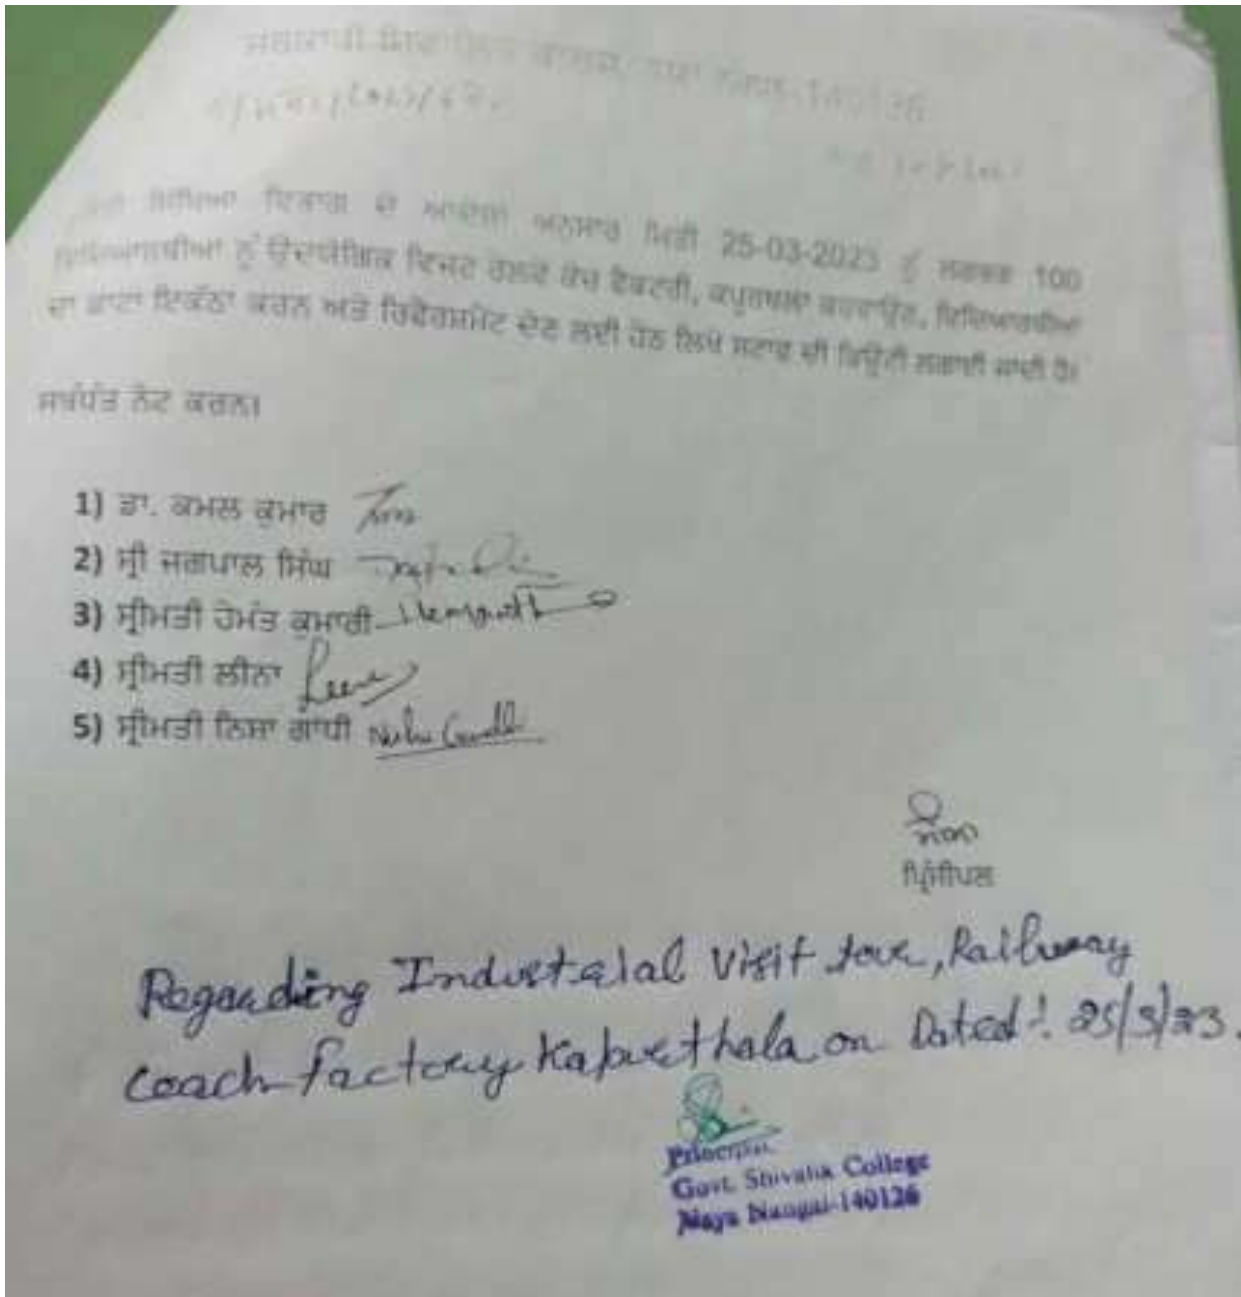 ਸਰਕਾਰੀ ਸ਼ਿਵਾਲਿਕ ਕਾਲਜ, ਨਯਾ ਨੰਗਲ-140126
ਸਿੱਖਿਆ ਵਿਭਾਗ ਦੇ ਆਦੇਸ਼ਾਂ ਅਨੁਸਾਰ ਮਿਤੀ 25-03-2023 ਨੂੰ ਲਗਭਗ 100
ਵਿਦਿਆਰਥੀਆਂ ਨੂੰ ਉਦਯੋਗਿਕ ਵਿਜਟ ਰੇਲਵੇ ਕੋਚ ਫੈਕਟਰੀ, ਕਪੂਰਥਲਾ ਕਰਵਾਉਣ, ਵਿਦਿਆਰਥੀਆਂ
ਦਾ ਡਾਟਾ ਇਕੱਠਾ ਕਰਨ ਅਤੇ ਰਿਫਰੈਸ਼ਮੈਂਟ ਦੇਣ ਲਈ ਹੇਠ ਲਿਖੇ ਸਟਾਫ ਦੀ ਡਿਊਟੀ ਲਗਾਈ ਜਾਂਦੀ ਹੈ।
ਸਬੰਧਤ ਨੋਟ ਕਰਨ।
1) ਡਾ. ਕਮਲ ਕੁਮਾਰ
2) ਸ੍ਰੀ ਜਗਪਾਲ ਸਿੰਘ
3) ਸ੍ਰੀਮਤੀ ਹੇਮੰਤ ਕੁਮਾਰੀ
4) ਸ੍ਰੀਮਤੀ ਲੀਨਾ Leena
5) ਸ੍ਰੀਮਤੀ ਨਿਸ਼ਾ ਗਾਂਧੀ Nisha Gandhi
ਪ੍ਰਿੰਸੀਪਲ
Regarding Industrial Visit tour, Railway
Coach factory Kapurthala on Dated: 25/3/23.
Principal
Govt. Shivalik College
Naya Nangal-140126